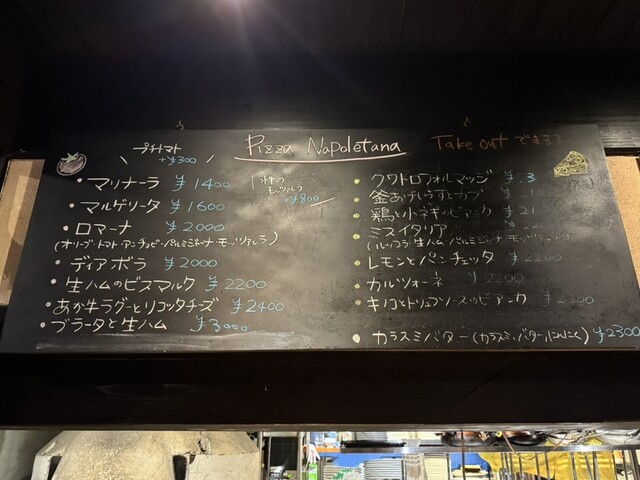 Pizza Napoletana
Take out できます
プチトマト
+¥300
・マリナーラ ¥1400
水牛の
モッツァレラ
+¥800
・マルゲリータ ¥1600
・ロマーナ ¥2000
(オリーブ・トマト・アンチョビ・パルミジャーナ・モッツァレラ)
・ディアボラ ¥2000
・生ハムのビスマルク ¥2200
・あか牛ラグーとリコッタチーズ ¥2400
・ブラータと生ハム ¥3000
・クワトロフォルマッジ
・釜あげしらすと
・鶏と小ネギのビアンケ
・ミスイタリア
(ルッコラ・生ハム・パルミジャーナ・モッツァレラ)
・レモンとパンチェッタ ¥2200
・カルツォーネ ¥2200
・キノコとトリュフソースのビアンケ
・カラスミバター(カラスミ、バター、にんにく) ¥2300